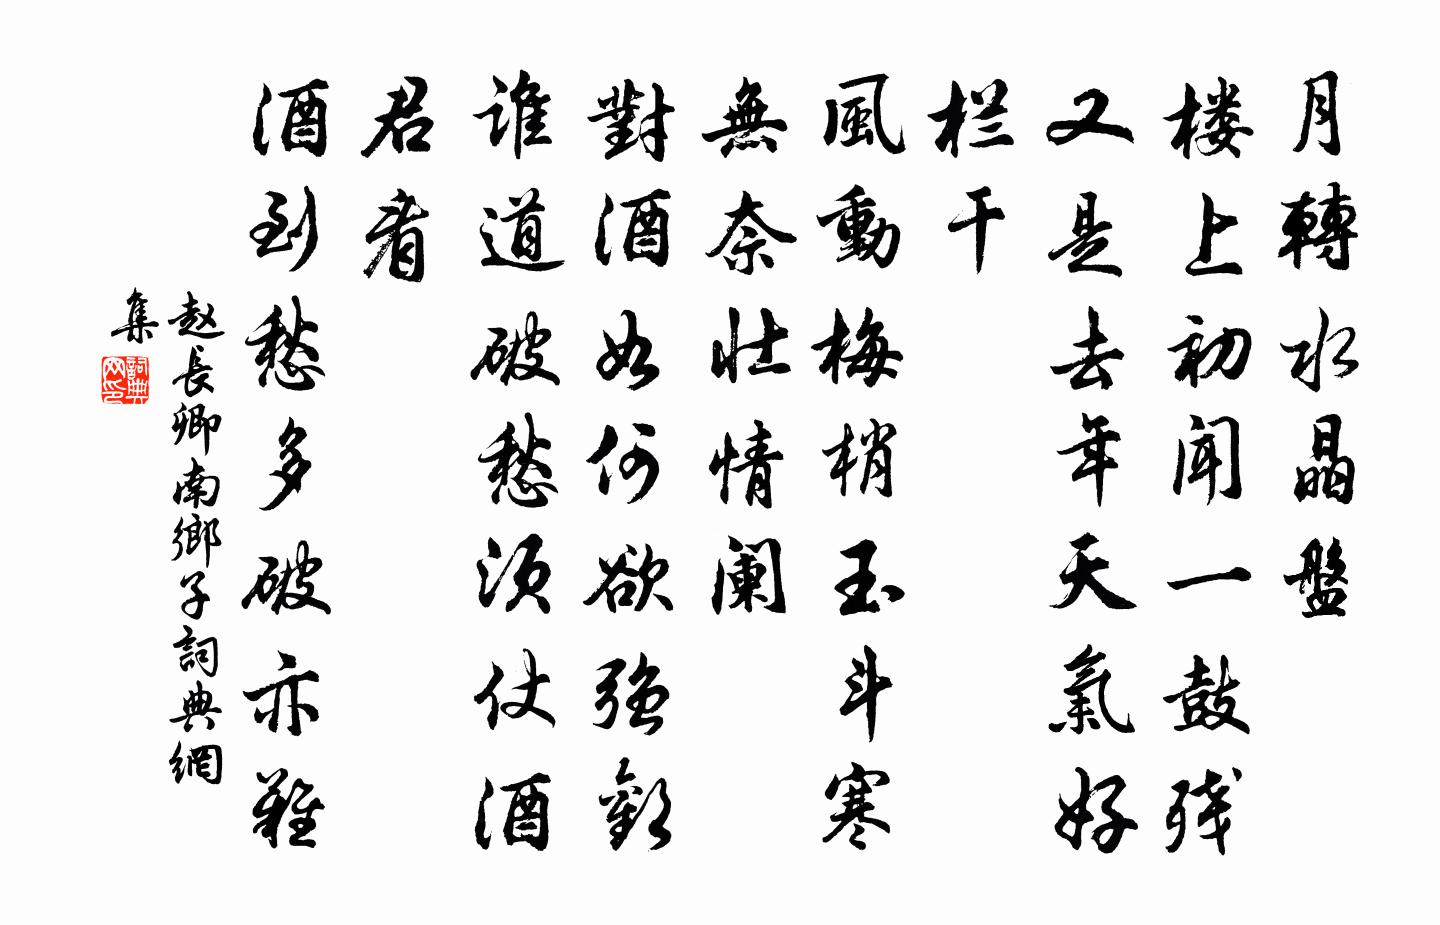 月轉水晶盤
楼上初闻一鼓残
又是去年天氣好
栏干
風動梅梢玉斗寒
無奈壮情阑
對酒如何欲强歡
谁道破愁须仗酒
君看
酒到愁多破亦難
赵長卿南鄉子詞典網
集
詞典
网印